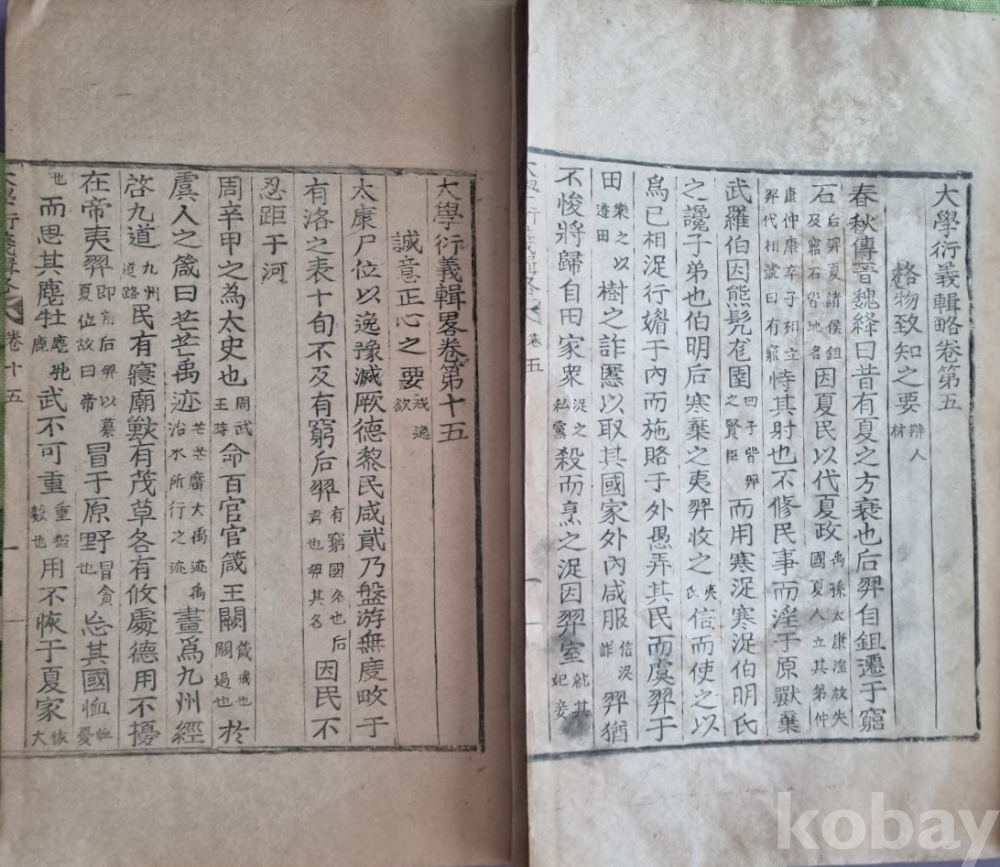 大學衍義輯略卷第五
格物致知之要 辨人材
春秋傳晋魏絳曰昔有夏之方衰也后羿自鉏遷于窮
石 后羿夏諸侯鉏及窮石皆地名 因夏民以代夏政 禹孫太康淫放失國夏人立其弟仲
康仲康卒子相立羿代相號曰有窮 恃其射也不修民事而淫于原獸棄
武羅伯因熊髠尨圉 四子皆羿之賢臣 而用寒浞寒浞伯明氏
之讒子弟也伯明后寒棄之夷羿收之 夷氏 信而使之以
爲已相浞行媚于內而施賂于外愚弄其民而虞羿于
田 樂之以遊田 樹之詐慝以取其國家外內咸服 信浞詐 羿猶
不悛將歸自田家衆 浞之私黨 殺而烹之浞因羿室 就其妃妾
卷五
大學衍義輯畧卷第十五
誠意正心之要 戒逸欲
太康尸位以逸豫滅厥德黎民咸貳乃盤游無度畋于
有洛之表十旬不反有窮后羿 有窮國名也后君也羿其名 因民不
忍距于河
周辛甲之為太史也 周武王時 命百官官箴王闕 箴戒也闕過也 於
虞人之箴曰芒芒禹迹 芒芒廣大禹迹禹治水所行之迹 畫爲九州經
啓九道 九州道路 民有寢廟獸有茂草各有攸處德用不擾
在帝夷羿 即前后羿以篡夏位故曰帝 冒于原野 冒貪也 忘其國恤 恤憂
也 而思其麀牡 麀牝鹿 武不可重 重猶數也 用不恢于夏家 恢大
大學衍義輯略 卷十五 一
kobay